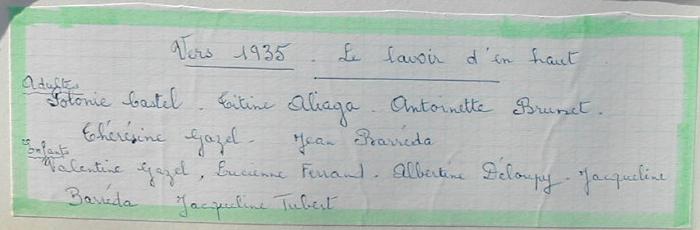 Vers 1935. Le lavoir d'en haut
Adultes
Totonie Castel. Titine Aliaga. Antoinette Brunet.
Thérésine Gazel. Jean Barréda
Enfants
Valentine Gazel, Lucienne Ferrand. Albertine Déloupy. Jacqueline
Barréda Jacqueline Tubert